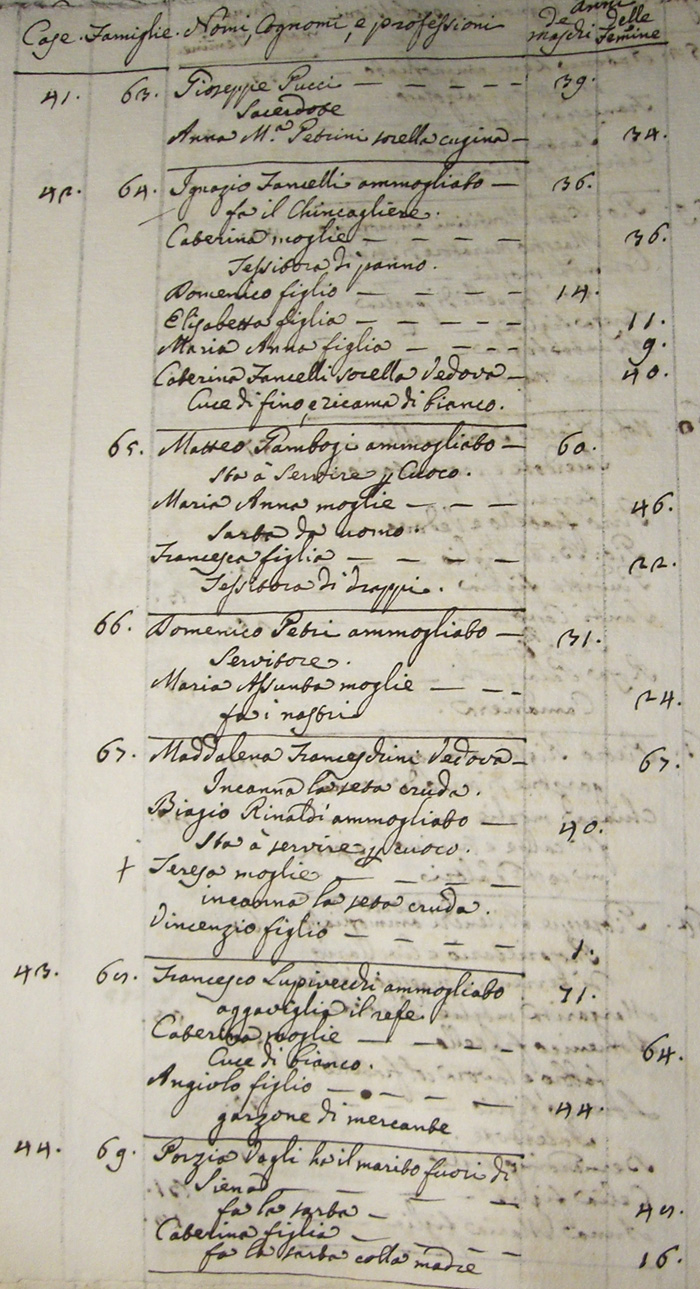 Case. Famiglie. Nomi, Cognomi, e professioni anni de maschi delle femine
41. 63. Gioseppe Pucci 39.
Sacerdote
Anna M.a Petrini sorella cugina 34.
42. 64. Ignazio Fancelli ammogliato 36.
fa il Chincagliere.
Caterina moglie 36.
Tessitora di panno.
Domenico figlio 14.
Elisabetta figlia 11.
Maria Anna figlia 9.
Caterina Fancelli sorella Vedova 40.
Cuce di fino, e ricama di bianco.
65. Matteo Gambogi ammogliato 60.
sta à servire p Cuoco.
Maria Anna moglie 46.
sarta da uomo.
Francesca figlia 22.
Tessitora di drappi.
66. Domenico Petri ammogliato 31.
Servitore.
Maria Assunta moglie 24.
fa i nastri
67. Maddalena Franceschini Vedova 67.
Incanna la seta cruda.
Biagio Rinaldi ammogliato 40.
sta à servire p cuoco.
+ Teresa moglie
incanna la seta cruda.
Vincenzio figlio 1.
43. 68. Francesco Lupivecchi ammogliato 71.
aggaviglia il refe
Caterina moglie 64.
Cuce di bianco.
Angiolo figlio
garzone di mercante 44.
44. 69. Porzia Vagli ha il marito fuori di
Siena
fa la sarta 48.
Caterina figlia
fa la sarta colla madre 16.